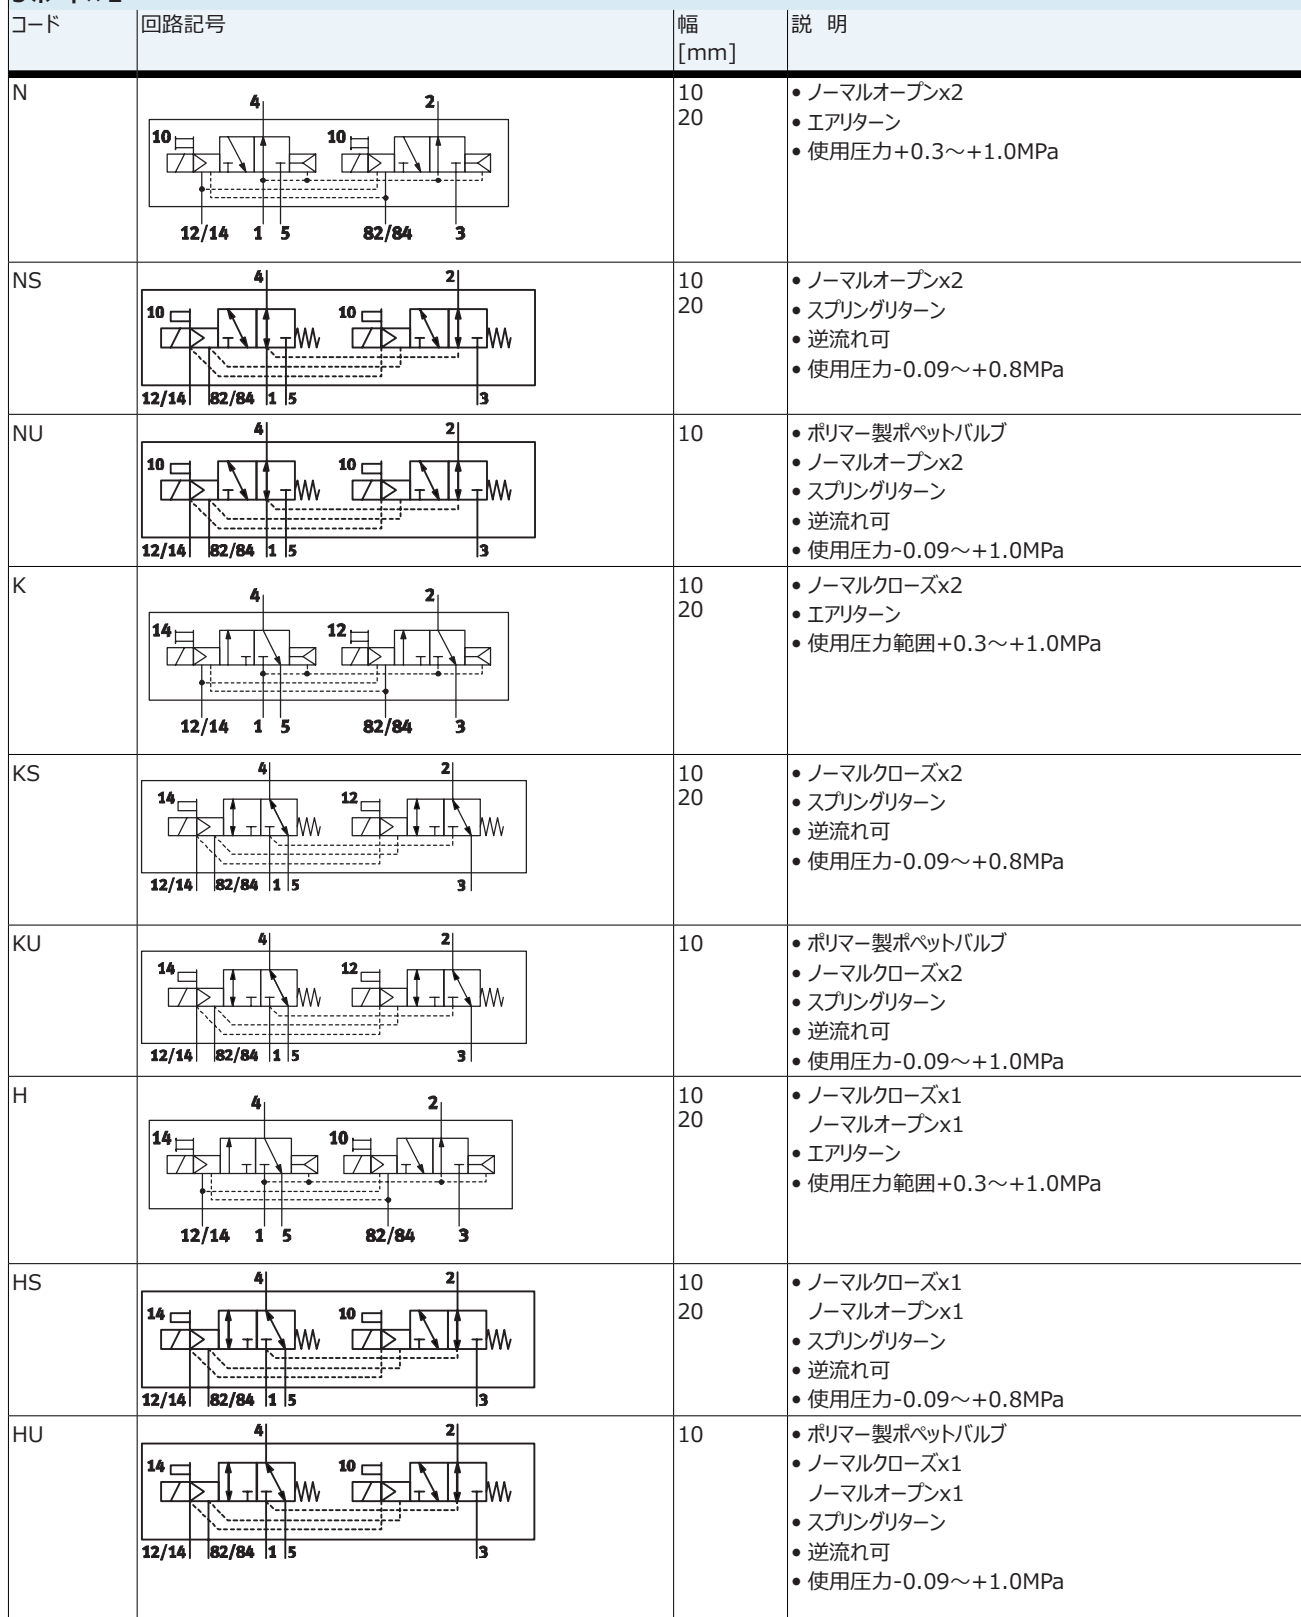 コード 回路記号 幅 [mm] 説 明
N
4 2
10 10
12/14 1 5 82/84 3
10
20
• ノーマルオープンx2
• エアリターン
• 使用圧力+0.3～+1.0MPa
NS
4 2
10 10
12/14 82/84 1 5 3
10
20
• ノーマルオープンx2
• スプリングリターン
• 逆流れ可
• 使用圧力-0.09～+0.8MPa
NU
4 2
10 10
12/14 82/84 1 5 3
10
• ポリマー製ポペットバルブ
• ノーマルオープンx2
• スプリングリターン
• 逆流れ可
• 使用圧力-0.09～+1.0MPa
K
4 2
14 12
12/14 1 5 82/84 3
10
20
• ノーマルクローズx2
• エアリターン
• 使用圧力範囲+0.3～+1.0MPa
KS
4 2
14 12
12/14 82/84 1 5 3
10
20
• ノーマルクローズx2
• スプリングリターン
• 逆流れ可
• 使用圧力-0.09～+0.8MPa
KU
4 2
14 12
12/14 82/84 1 5 3
10
• ポリマー製ポペットバルブ
• ノーマルクローズx2
• スプリングリターン
• 逆流れ可
• 使用圧力-0.09～+1.0MPa
H
4 2
14 10
12/14 1 5 82/84 3
10
20
• ノーマルクローズx1
ノーマルオープンx1
• エアリターン
• 使用圧力範囲+0.3～+1.0MPa
HS
4 2
14 10
12/14 82/84 1 5 3
10
20
• ノーマルクローズx1
ノーマルオープンx1
• スプリングリターン
• 逆流れ可
• 使用圧力-0.09～+0.8MPa
HU
4 2
14 10
12/14 82/84 1 5 3
10
• ポリマー製ポペットバルブ
• ノーマルクローズx1
ノーマルオープンx1
• スプリングリターン
• 逆流れ可
• 使用圧力-0.09～+1.0MPa